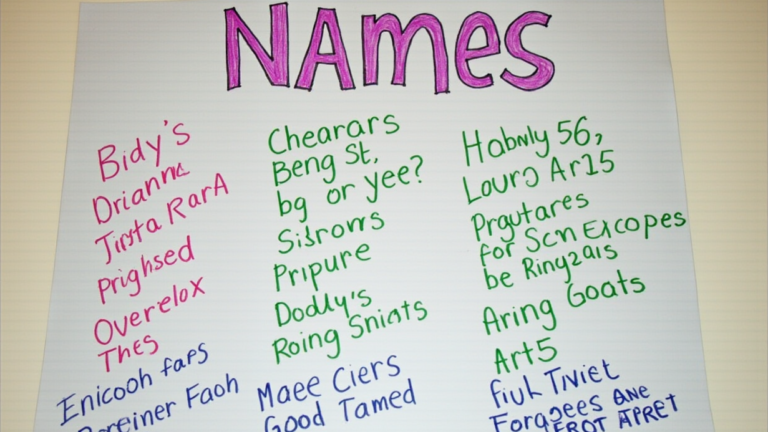 NAmes
Bidy's
Drianna
Jirsta RarA
Prighsed
Overelox
Thes
Enicooh faps
Faoh
Chearars
Beng St,
bg or yee?
Sisrows
Pripure
Dodly's
Roing Sniats
Maee Ciers
Good Tamed
Habnly 56,
Louro Ar15
Prgutares
for Scn Excopes
be Ringzais
Aring Goats
Art5
fiuh Tiviet
Foragees ane
APRET